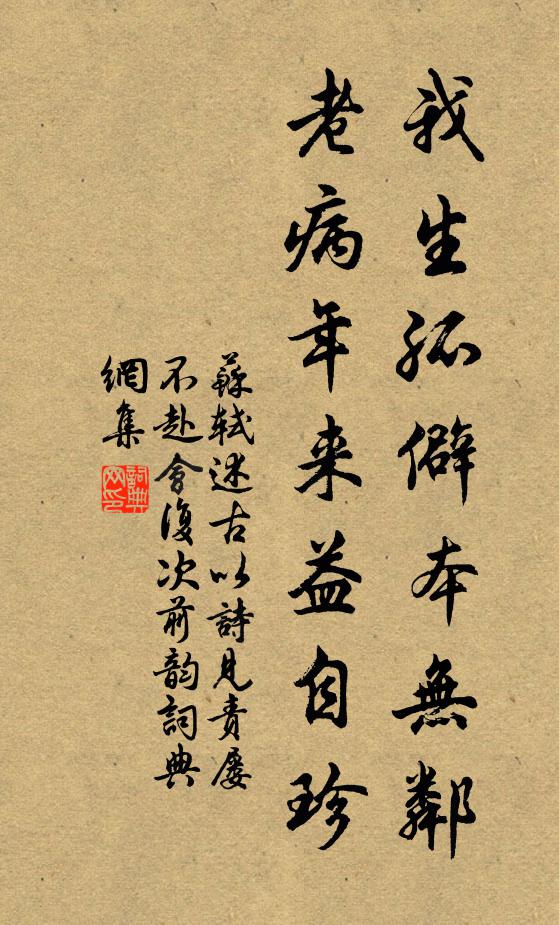 我生孤僻本無鄰
老病年来益自珍
蘇軾述古以詩見責屡
不赴會復次前韵詞典
網集
詞典
网印